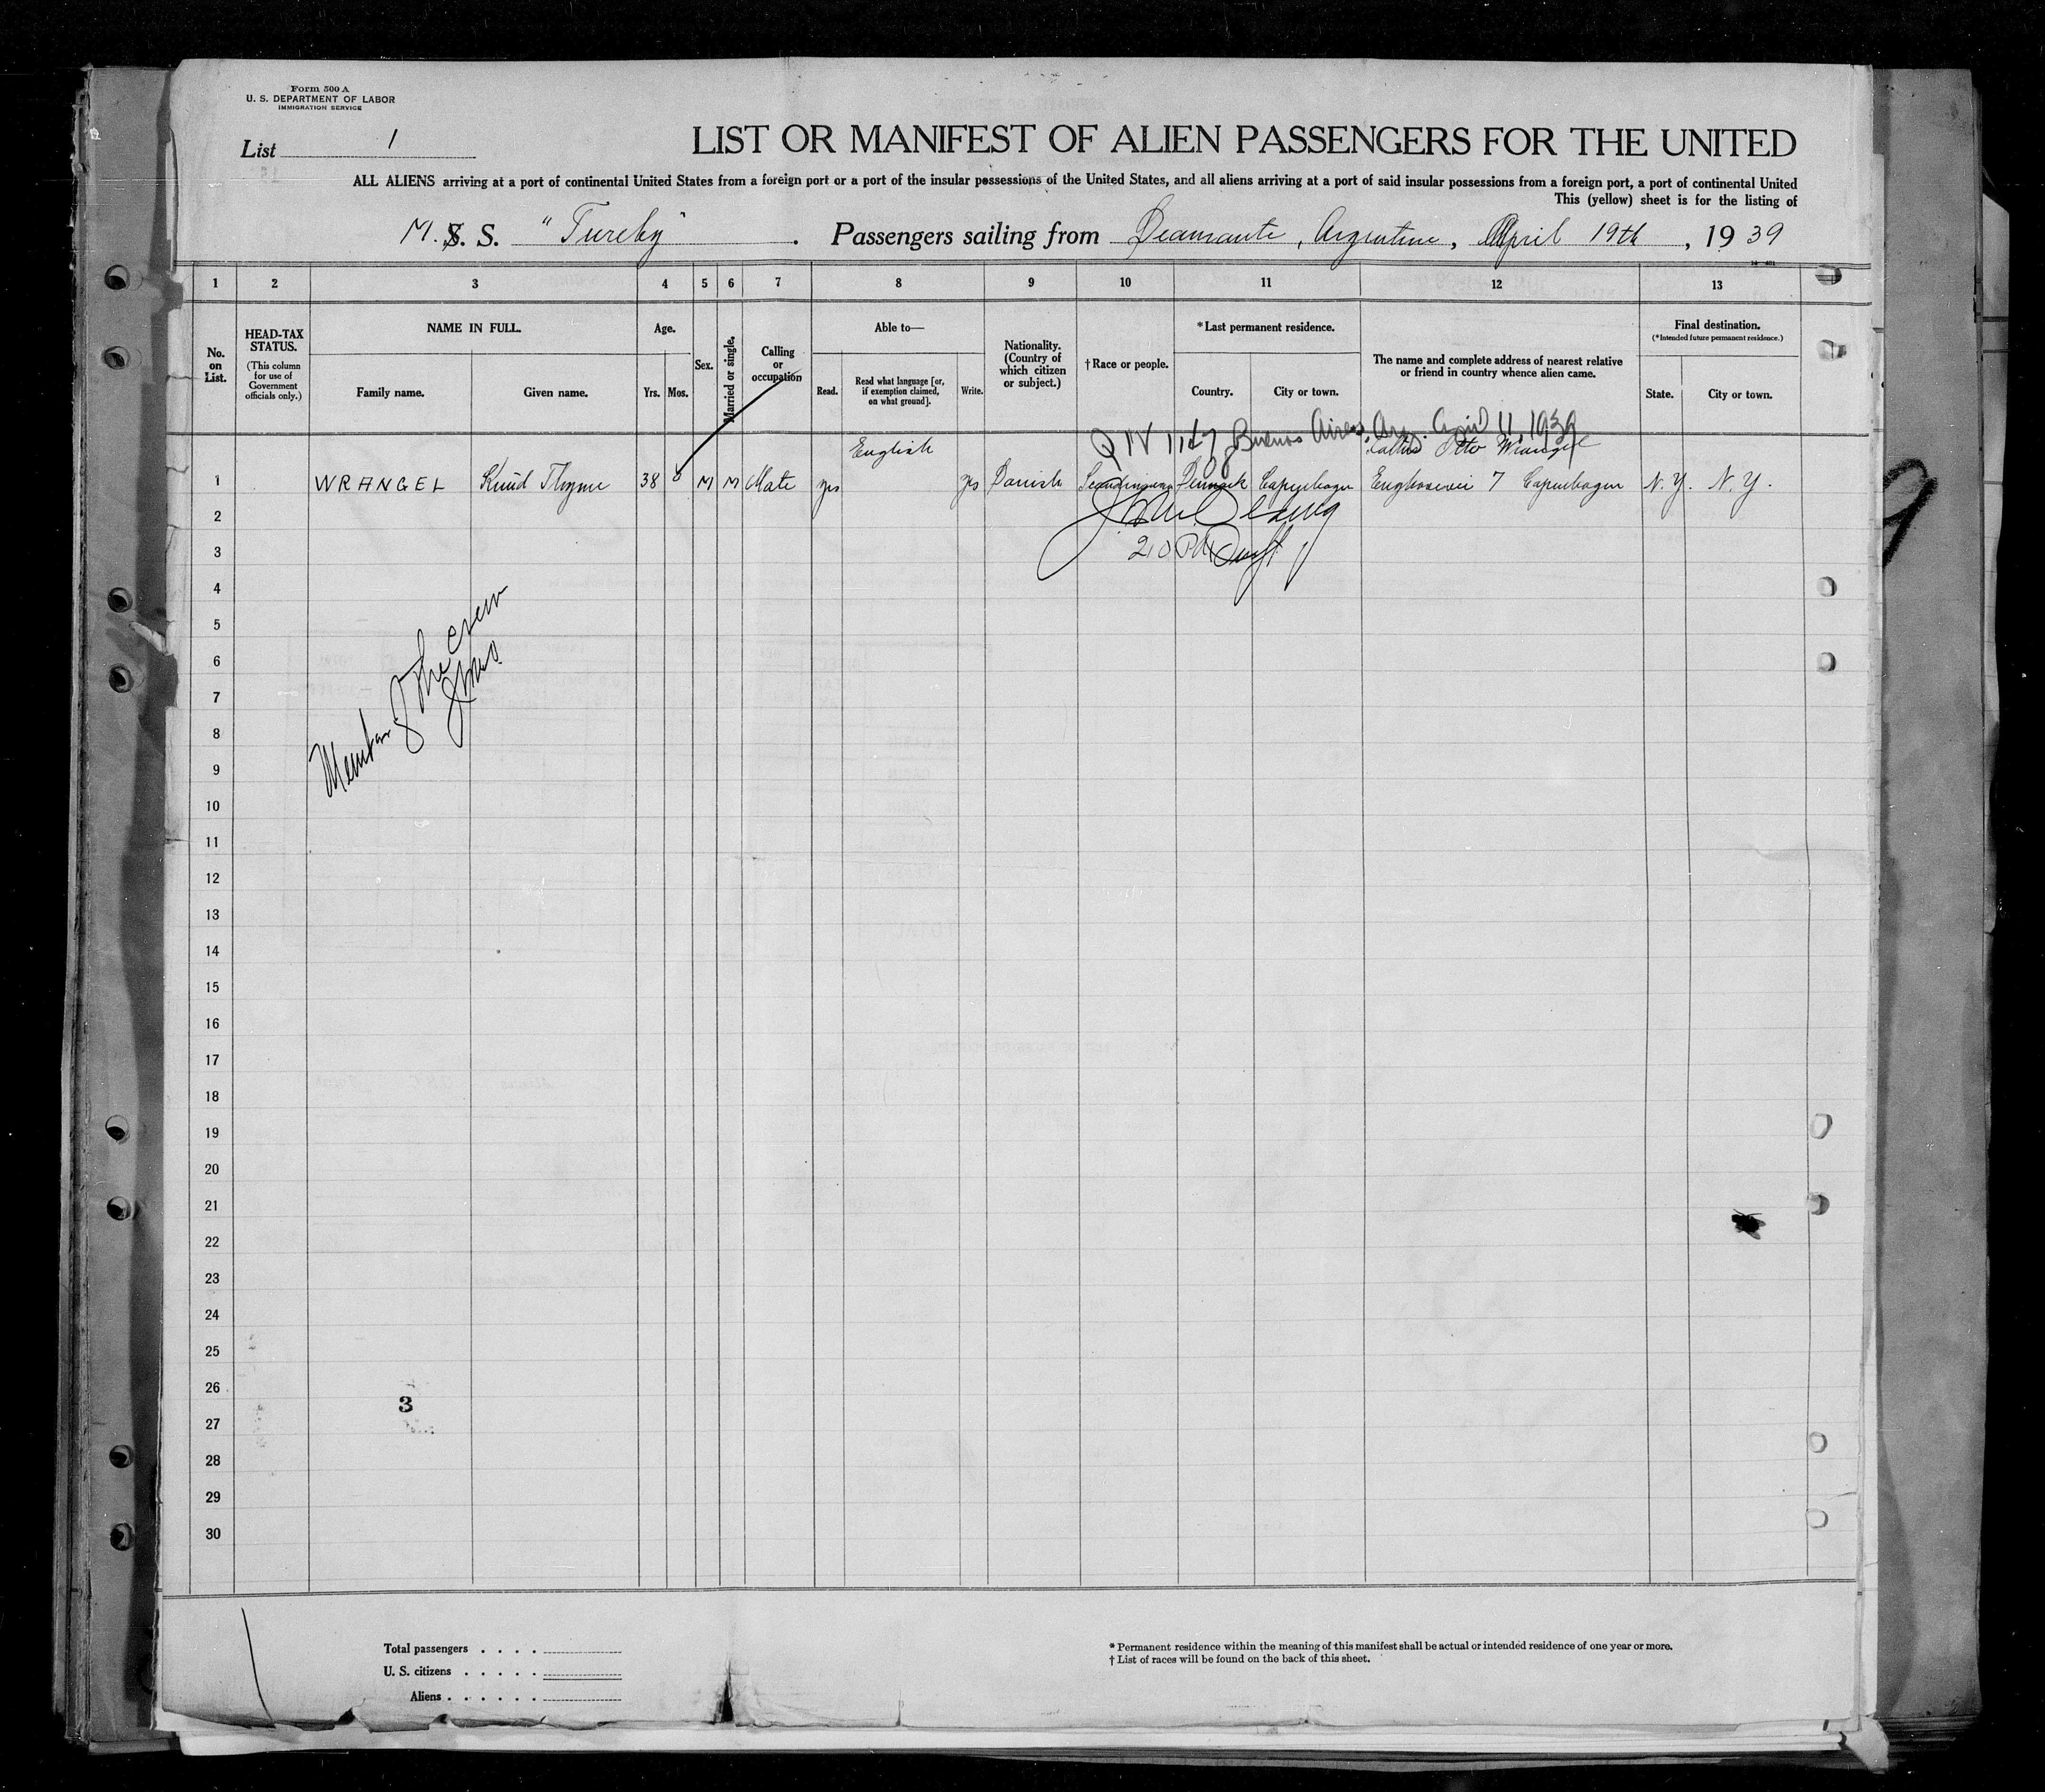 Form 500 A
U. S. DEPARTMENT OF LABOR
IMMIGRATION SERVICE
List 1
LIST OR MANIFEST OF ALIEN PASSENGERS FOR THE UNITED
ALL ALIENS arriving at a port of continental United States from a foreign port or a port of the insular possessions of the United States, and all aliens arriving at a port of said insular possessions from a foreign port, a port of continental United
This (yellow) sheet is for the listing of
M. S. S. "Tureby" . Passengers sailing from Diamante, Argentine, April 19th , 1939
1 2 3 4 5 6 7 8 9 10 11 12 13
No. on List.
HEAD-TAX STATUS.
(This column for use of Government officials only.)
NAME IN FULL.
Family name. Given name.
Age.
Yrs. Mos.
Sex.
Married or single.
Calling or occupation
Able to—
Read. Read what language [or, if exemption claimed, on what ground]. Write.
Nationality. (Country of which citizen or subject.)
† Race or people.
* Last permanent residence.
Country. City or town.
The name and complete address of nearest relative or friend in country whence alien came.
Final destination.
(* Intended future permanent residence.)
State. City or town.
Buenos Aires, Arg. April 11, 1939
English Otto Wrangel
1 WRANGEL Knud Thyme 38 M M Mate yes yes Danish Scandinavian Denmark Copenhagen Enghavevei 7 Copenhagen N.Y. N.Y.
2
3
4
5
6
7
8
9
10
11
12
13
14
15
16
17
18
19
20
21
22
23
24
25
26
27
28
29
30
Member of the crew
3
Total passengers . . . .
U. S. citizens . . . . .
Aliens . . . . . .
* Permanent residence within the meaning of this manifest shall be actual or intended residence of one year or more.
† List of races will be found on the back of this sheet.